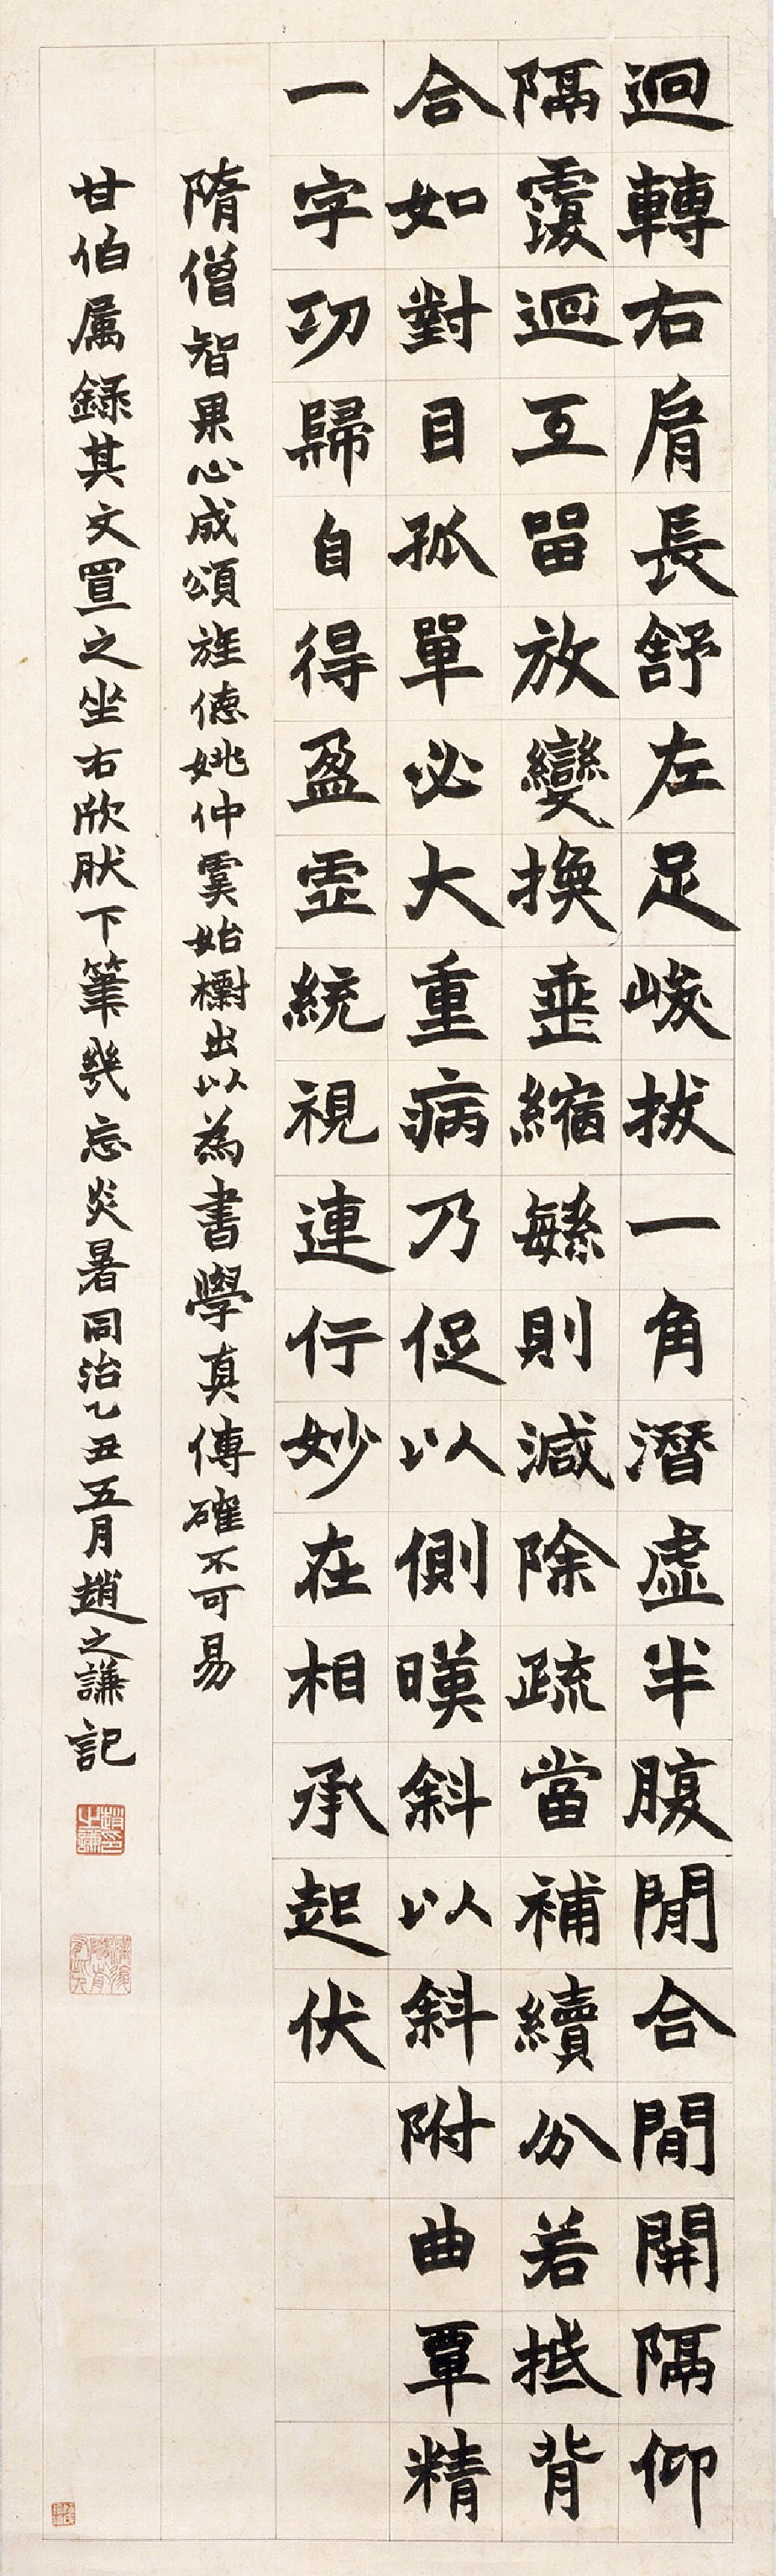 迴轉右肩長舒左足峻拔一角潛虛半腹閒合閒開隔仰
隔覆迴互留放變換垂縮繇則減除疏當補續分若抵背
合如對目孤單必大重病乃促以側暎斜以斜附曲覃精
一字功歸自得盈虛統視連行妙在相承起伏
隋僧智果心成頌旌德姚仲虞始櫥出以為書學真傳確不可易
甘伯属錄其文置之坐右欣肰下筆幾忘炎暑同治乙丑五月趙之謙記
趙之謙印